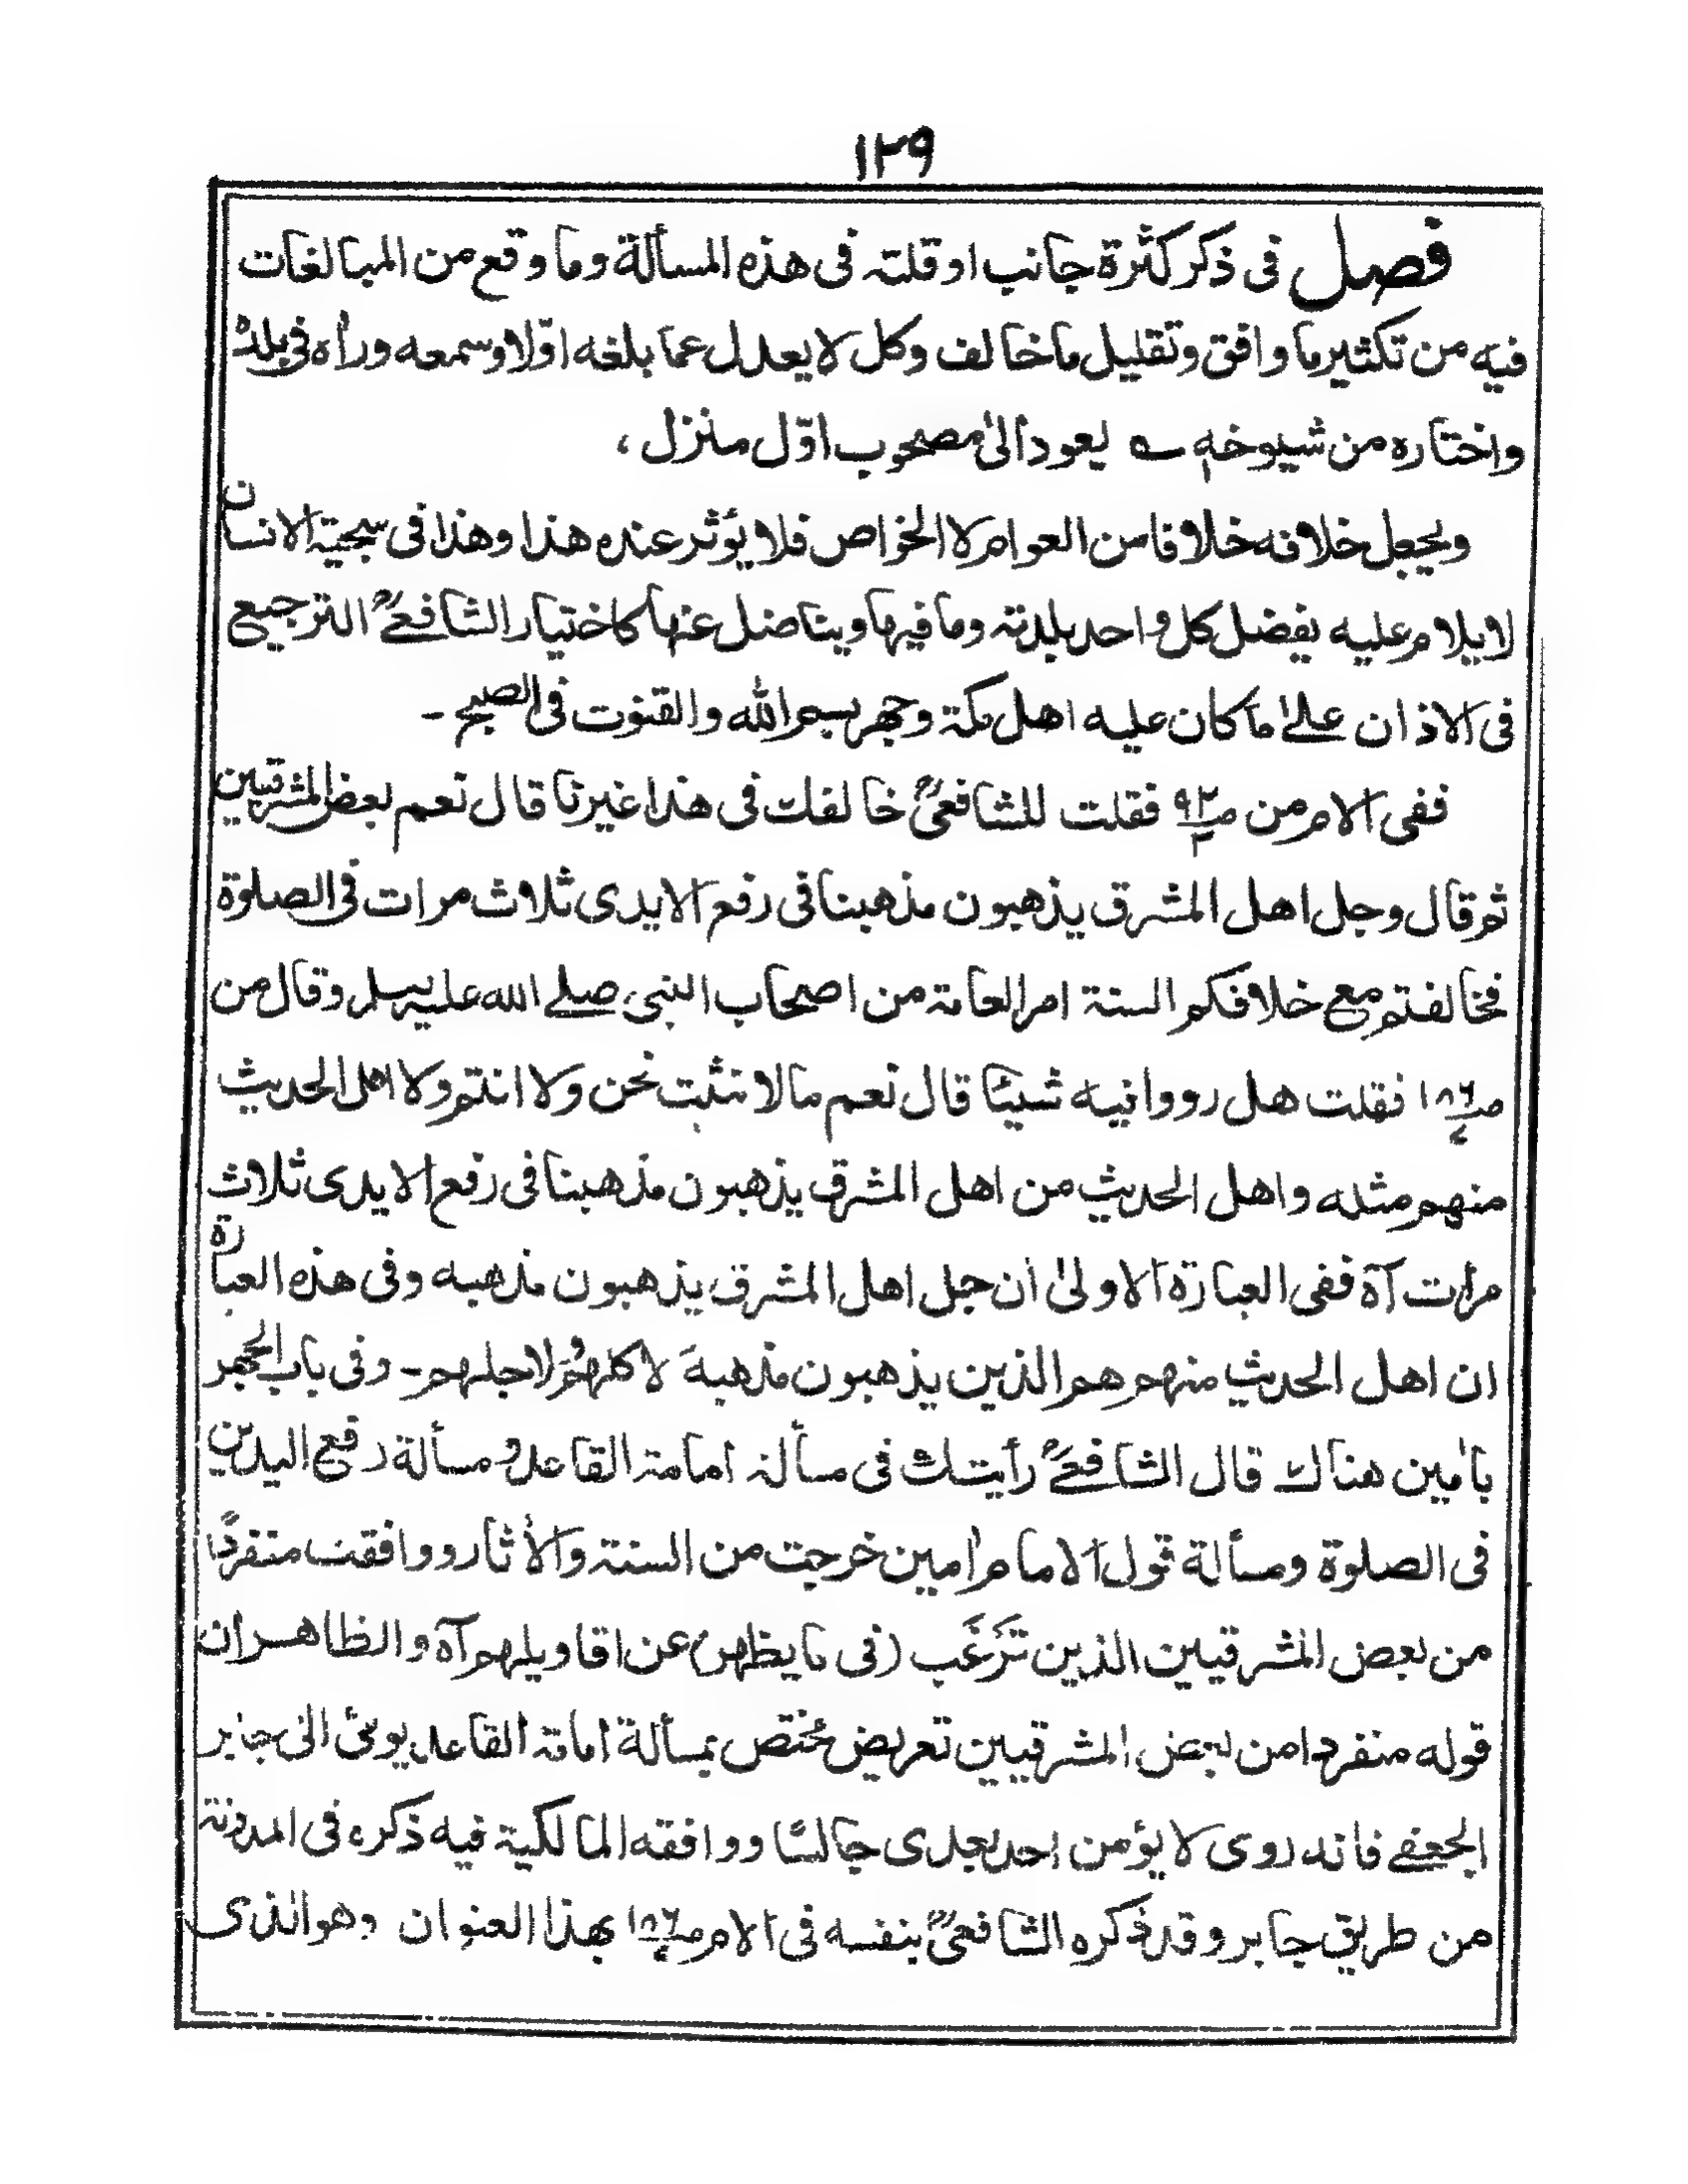 ١٢٩
فصل فی ذکر کثرة جانب او قلته فی هذه المسألة وما وقع من المبالغات
فیه من تکثیر ما وافق وتقلیل ما خالف وکل لا یعدل عما بلغه اوّلا وسمعه ورأه فی بلده
واختاره من شیوخه ؎ یعود الیٰ مصحوب اوّل منزل ،
ویجعل خلافه خلافا من العوام لا الخواص فلا یؤثر عنده هذا وهذا فی سجیة الانسان
لا یلام علیه یفضل کل واحد بلدته وما فیها ویناضل عنها کاختیار الشافعیؒ الترجیع
فی الاذان علیٰ ما کان علیه اهل مکة وجهر بسم الله والقنوت فی الصبح ۔
ففی الام من صـ٩٢ـ٢ فقلت للشافعیؒ خالفك فی هذا غیرنا قال نعم بعض المشرقیین
ثم قال وجل اهل المشرق یذهبون مذهبنا فی رفع الایدی ثلاث مرات فی الصلوة
فخالفتم مع خلافکم السنة امر العامة من اصحاب النبی صلے الله علیه وسلم وقال من
صـ١٨٦ـ٧ فقلت هل رووا فیه شیئا قال نعم ما لا نثبت نحن ولا انتم ولا اهل الحدیث
منهم مثله واهل الحدیث من اهل المشرق یذهبون مذهبنا فی رفع الایدی ثلاث
مرات آه ففی العبارة الاولیٰ ان جل اهل المشرق یذهبون مذهبه وفی هذه العبارة
ان اهل الحدیث منهم هم الذین یذهبون مذهبه لا کلهم ولا جلهم ۔ وفی باب الجهر
بامین هناك قال الشافعیؒ رأیتك فی مسألة امامة القاعد ومسألة رفع الیدین
فی الصلوة ومسألة قول الامام اٰمین خرجت من السنة والأثار ووافقت منفردًا
من بعض المشرقیین الذین ترغب (فی ما یظهر) عن اقاویلهم آه والظاهر ان
قوله منفردا من بعض المشرقیین تعریض مختص بمسألة امامة القاعد یومئ الی جابر
الجعفی فانه روی لا یؤمن احد بعدی جالسًا ووافقه المالکیة فیه ذکره فی المدونة
من طریق جابر وقد ذکره الشافعیؒ بنفسه فی الام صـ١٨٦ـ٧ بهذا العنوان وهو الذی